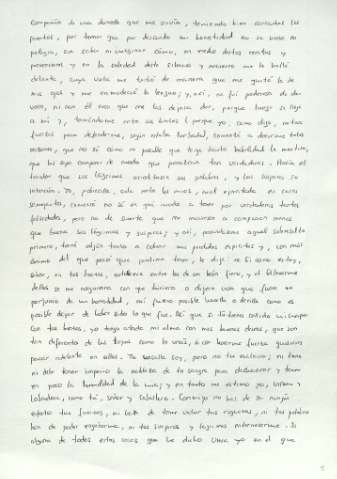 compañia de una doncella que me servía, teniendo bien cerradas las
puertas, por temor que por descuido mi honestidad no se viese en
peligro, sin saber ni imaginar cómo, en medio destos recatos y
prevenciones y en la soledad deste silencio y encierro me le hallé
delante, cuya vista me turbó de manera que me quitó la de
mis ojos y me enmudeció la lengua; y, así, no fui poderosa de dar
voces, ni aun él creo que me las dejara dar, porque luego se llegó
a mí, y, tomándome entre sus brazos (porque yo, como digo, no tuve
fuerzas para defenderme, según estaba turbada), comenzó a decirme tales
razones, que no sé cómo es posible que tenga tanta habilidad la mentira,
que las sepa componer de modo que parezcan tan verdaderas. Hacía el
traidor que sus lágrimas acreditasen sus palabras, y los suspiros su
intención. Yo, pobrecilla, sola entre los míos, mal ejercitada en casos
semejantes, comencé no sé en qué modo a tener por verdaderas tantas
falsedades, pero no de suerte que me moviesen a compasión menos
que buena sus lágrimas y suspiros; y así, pasándoseme aquel sobresalto
primero, torné algún tanto a cobrar mis perdidos espíritus y, con más
ánimo del que pensé que pudiera tener, le dije: «Si como estoy,
señor, en tus brazos, estuviera entre los de un león fiero, y el librarme
dellos se me asegurara con que hiciera o dijera cosa que fuera en
perjuicio de mi honestidad, así fuera posible hacella o decilla como es
posible dejar de haber sido lo que fue. Así que si tú tienes ceñido mi cuerpo
con tus brazos, yo tengo atada mi alma con mis buenos deseos, que son
tan diferentes de los tuyos como lo verás, si con hacerme fuerza quisieres
pasar adelante en ellos. Tu vasalla soy, pero no tu esclava; ni tiene
ni debe tener imperio la nobleza de tu sangre para deshonrar y tener
en poco la humildad de la mía; y en tanto me estimo yo, villana y
labradora, como tú, señor y caballero. Conmigo no han de ser de ningún
efecto tus fuerzas, ni han de tener valor tus riquezas, ni tus palabras
han de poder engañarme, ni tus suspiros y lágrimas enternecerme. Si
alguna de todas estas cosas que he dicho viera yo en el que